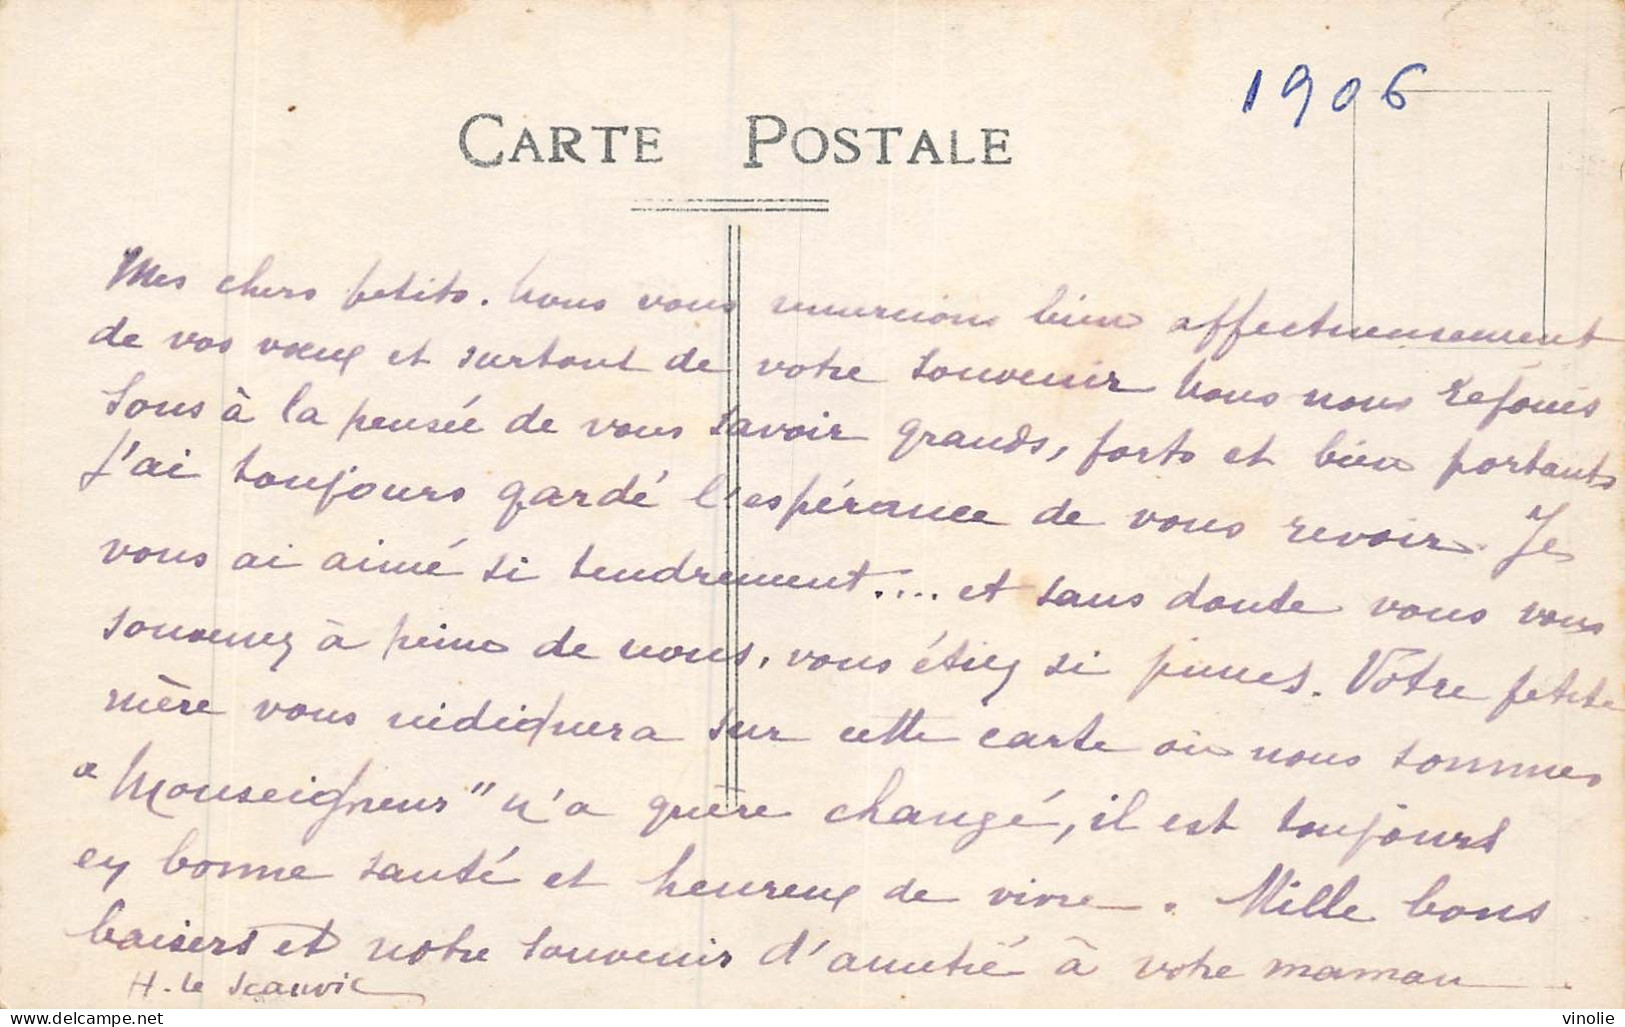 1906
CARTE POSTALE
Mes chers petits. Nous vous remercions bien affectueusement
de vos vœux et surtout de votre souvenir Nous nous rejouis
sons à la pensée de vous savoir grands, forts et bien portants
J'ai toujours gardé l'espérance de vous revoir. Je
vous ai aimé si tendrement.... et sans doute vous vous
souvenez à peine de nous, vous étiez si jeunes. Votre petite
mère vous indiquera sur cette carte où nous sommes
"Monseigneur" n'a guère changé, il est toujours
en bonne santé et heureux de vivre. Mille bons
baisers et notre souvenir d'amitié à votre maman
H. Le
delcampe.net
vinolie